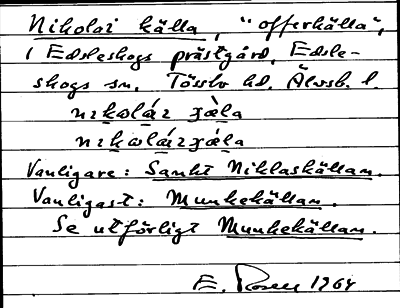 Nikolai källa, "offerkälla",
i Edsleskogs prästgård, Edsle-
skogs sn, Tössbo hd, Älvsb. l.
nɪkɷláɪ xàla
nɪkɷláɪxála
Vanligare: Sankt Niklaskällan.
Vanligast: Munkekällan.
Se utförligt Munkekällan.
E. 1964